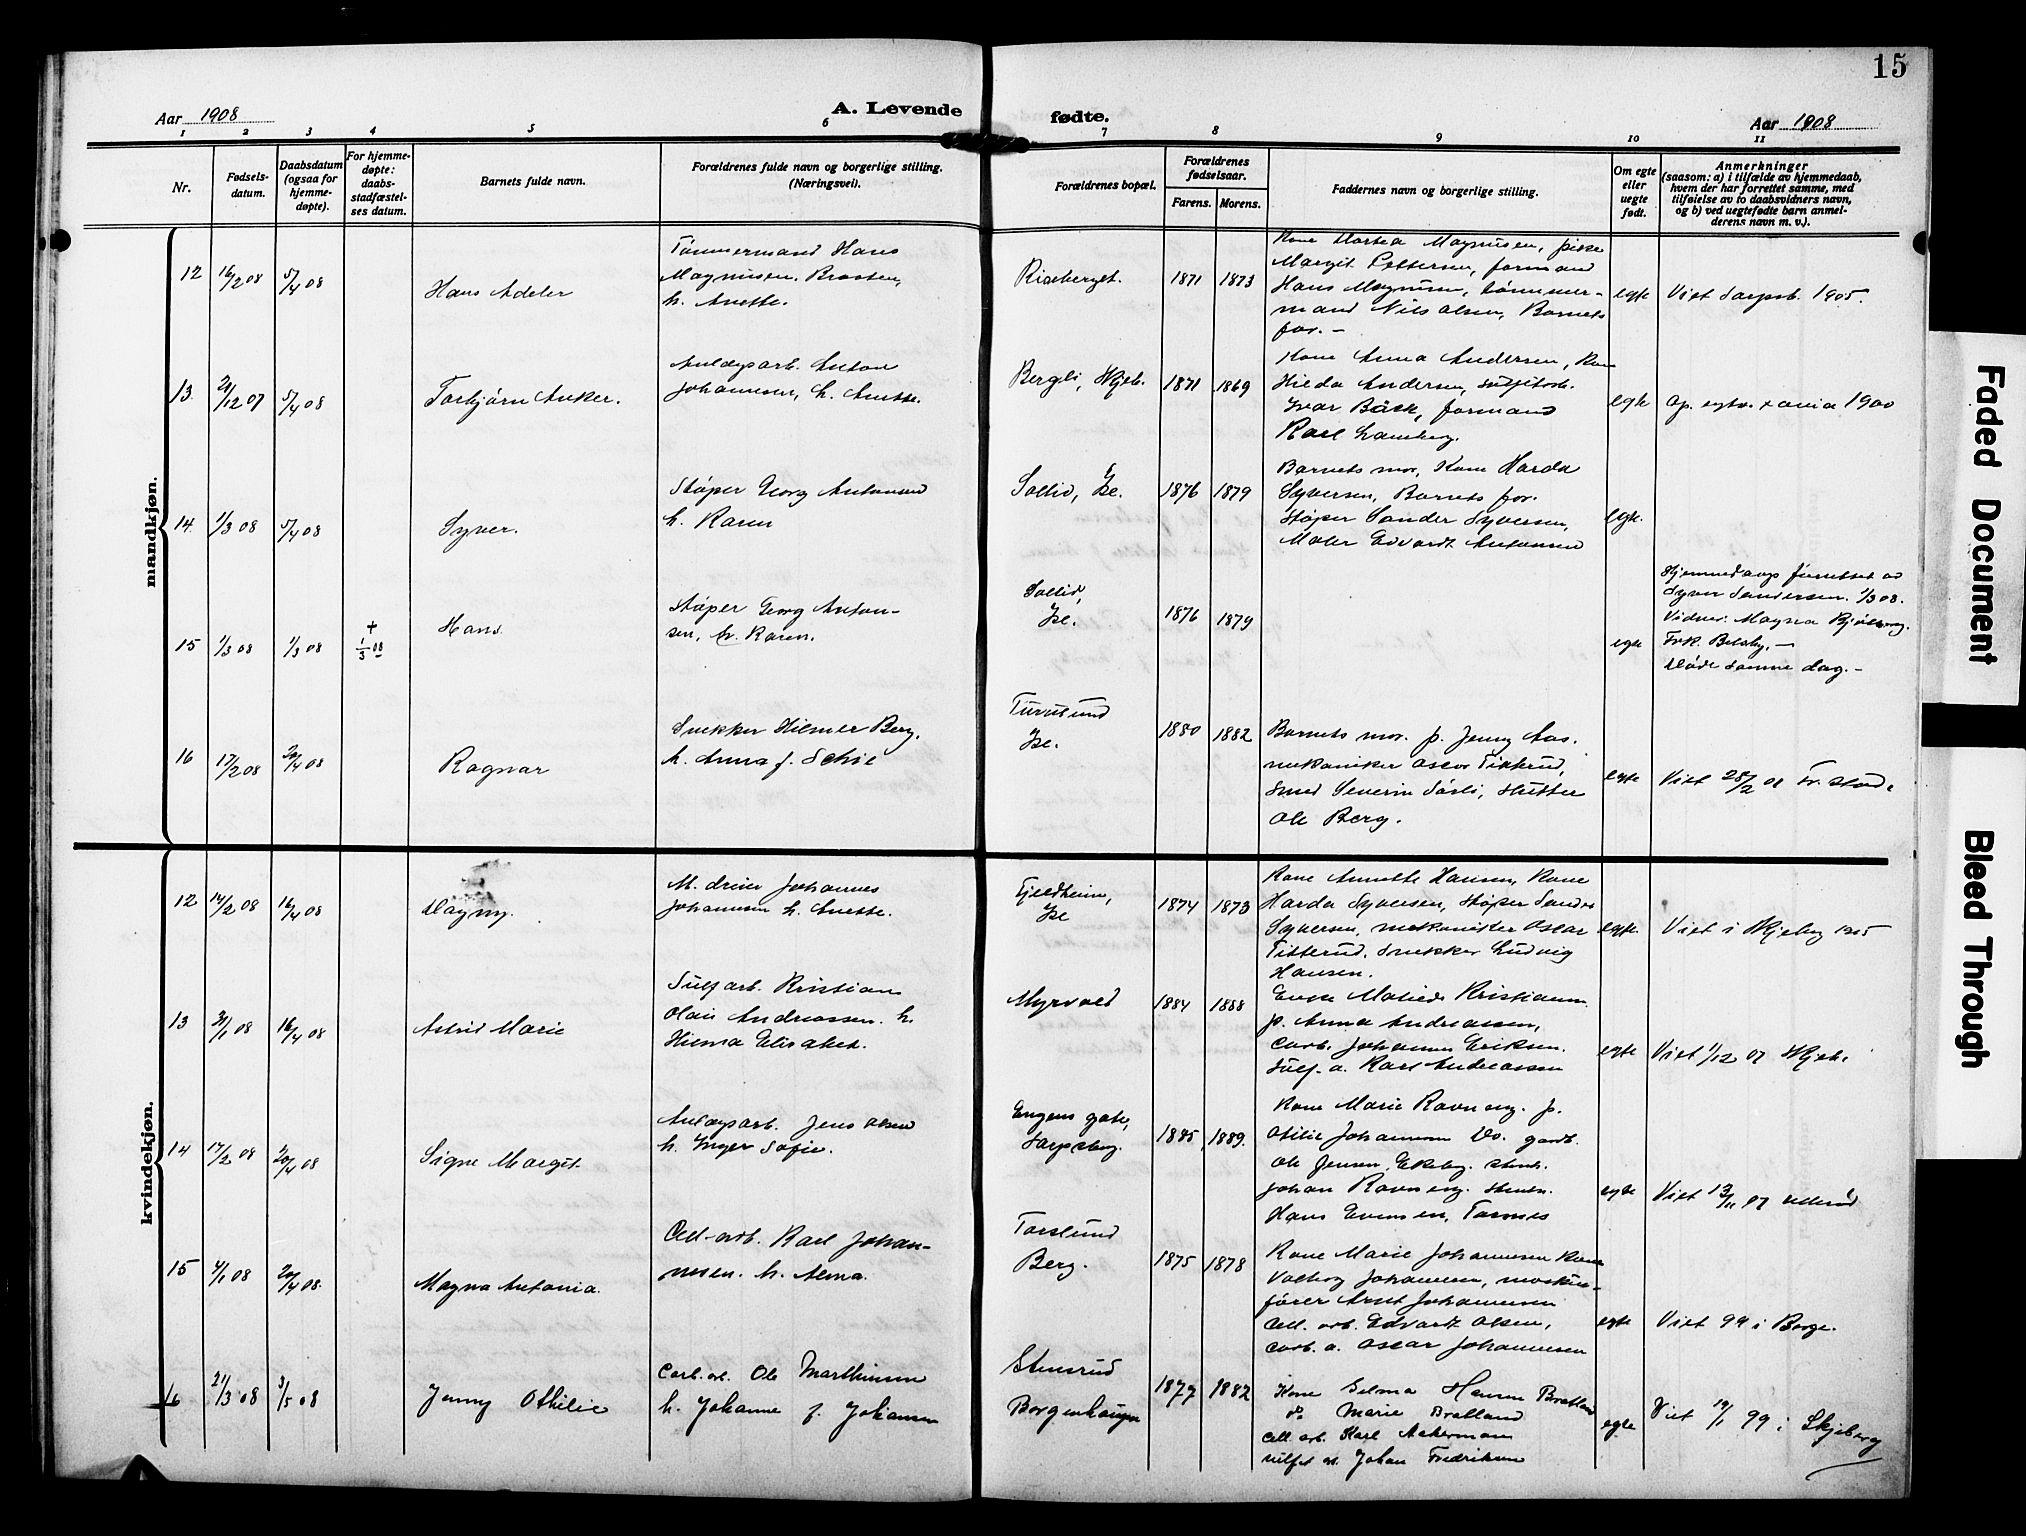 15
Aar 1908
A. Levende
fødte.
Aar 1908
1 2 3 4 5 6 7 8 9 10 11
Nr.
Fødsels-
datum.
Daabsdatum
(ogsaa for
hjemme-
døpte).
For hjemme-
døpte:
daabs-
stadfæstel-
ses datum.
Barnets fulde navn.
Forældrenes fulde navn og borgerlige stilling.
(Næringsvei).
Forældrenes bopæl.
Forældrenes
fødselsaar.
Farens. Morens.
Faddernes navn og borgerlige stilling.
Om egte
eller
uegte
født.
Anmerkninger
(saasom: a) i tilfælde av hjemmedaab,
hvem der har forrettet samme, med
tilføielse av to daabsvidners navn,
og b) ved uegtefødte barn anmel-
derens navn m. v.).
mandkjøn.
12 16/2 08 5/4 08
Hans Adeler
Tømmermand Hans
Magnussen, Braaten,
h. Anette.
1871 1873
Kone Martea Magnusen, pike
Margit Pettersen, formand
Hans Magnusen, tømmer-
mand Nils Olsen, Barnets
far. –
egte
Viet Sarpsb. 1905.
13 21/12 07 5/4 08
Torbjørn Anker.
Anlægsarb. Anton
Johannesen, h. Anette.
Bergli, Skjeb.
1871 1869
Kone Anna Andersen, Kone
Hilda Andersen,
Ivar Bäck, formand
Karl
egte
1900
14 1/3 08 5/4 08
Syver.
Støper Georg Antonsen
h. Karen
Sollid, Ise.
1876 1879
Barnets mor, Kone Harda
Syversen, Barnets far.
Støper Sander Syversen,
Maler Edvardt Antonsen
egte.
15 1/3 08 1/3 08
+
1/3 08
Hans.
Støper Georg Anton-
sen, h. Karen.
Sollid,
Ise.
1876 1879
egte
Hjemmedaap forrettet av
Syver Sandersen 1/3 08.
Vidner: Magna
Frk.
Døde samme dag. –
16 17/2 08 20/4 08
Ragnar
Snekker Hilmer Berg,
h. Anna f. Schie
Ise.
1880 1882
Barnets mor. p. Jenny Aas.
mekaniker Oscar Titterud,
Smed Severin Sørli,
Ole Berg.
egte
Viet 25/2 08 Fr.stad.
kvindekjøn.
12 14/2 08 16/4 08
Dagny.
M. driver Johannes
Johannesen h. Anette.
Fjeldheim,
Ise
1874 1873
Kone Annette Hansen, Kone
Harda Syversen, Støper Sander
Syversen, mekaniker Oscar
Titterud, Snekker Ludvig
Hansen.
egte.
Viet i Skjeberg 1905
13 31/1 08 16/4 08
Astrid Marie
Sulf arb. Kristian
Olai Andreassen. h.
Hilma Elisabet.
Myrvold
1884 1888
Enke Matilde Kristiansen
p. Anna Andreassen,
Carb. Johannes Eriksen.
Sulf. a. Karl Andreassen
egte
Viet 1/12 07 Skjeb.
14 17/2 08 20/4 08
Signe Margit.
Anlægsarb. Jens Olsen
h. Inger Sofie.
Engens gate,
Sarpsborg.
1885 1889.
Kone Marie Ravneng. p.
Otilie Johannesen Do. gardb.
Ole Jensen, Ekeberg.
Johan Ravneng.
Hans Evensen, Tarnes
egte
Viet 13/11 07
15 4/1 08 20/4 08.
Magna Antonia.
Cell-arb. Karl Johan-
nesen. h. Alma.
Torslund
Berg.
1875 1878
Kone Marie Johannesen Kone
Valborg Johannesen, maskin-
fører Arnt Johannesen
Cell. arb. Edvardt Olsen,
Carb. a. Oscar Johannesen
egte
Viet 99 i Borge.
16 21/3 08 3/5 08
Jenny Othilie
Carb. arb. Ole Marthinsen
h. Johanne f. Johansen
Stensrud
Borgenhaugen
1877 1882
Kone Selma Hansen Bratland
do Marie Bratland
Cell. arb. Karl Ackermann
sulfat arb. Johan Fredriksen
egte
Viet 19/1 99 i Skjeberg
Faded Document
Bleed Through